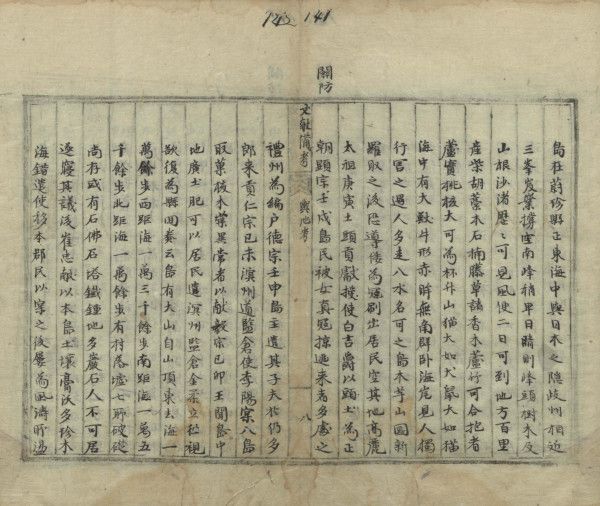 141
關防
島在蔚珍縣正東海中與日本之隱岐州相近
三峯岌嶪撐空南峰稍卑日晴則峰頭樹木及
山根沙渚歷〻可見風便二日可到地方百里
產柴胡藁本石楠藤草諸香木蘆竹可合抱者
蘆實桃核大可為杯升山猫大如犬鼠大如猫
海中有大獸牛形赤眸無角群卧海岸見人獨
行害之遇人多走入水名可之島本羊山國新
羅取之後恐導倭為寇刷出居民空其地高麗
太祖庚寅土頭貢獻授使白吉爵以頭土為正
朝顯宗壬戌島民被女真寇掠逃来者多處之
文献備考 輿地考 八
禮州為編戶德宗壬申島主遣其子夫於仍多
郎来貢仁宗己未溟州道監倉使李陽宗入島
取菓核木葉異常者以献毅宗己卯王聞島中
地廣土肥可以居民遣溟州監倉金柔立往視
欲復為縣回奏云島有大山自山頂東去海一
萬餘步西距海一萬三千餘步南距海一萬五
千餘步北距海一萬餘步有村落墟七所破礎
尚存或有石佛石塔鐵鍾地多巖石人不可居
遂寢其議後崔忠献以本島土壤膏沃多珍木
海錯遣使移本郡民以實之後屢為風濤所蕩